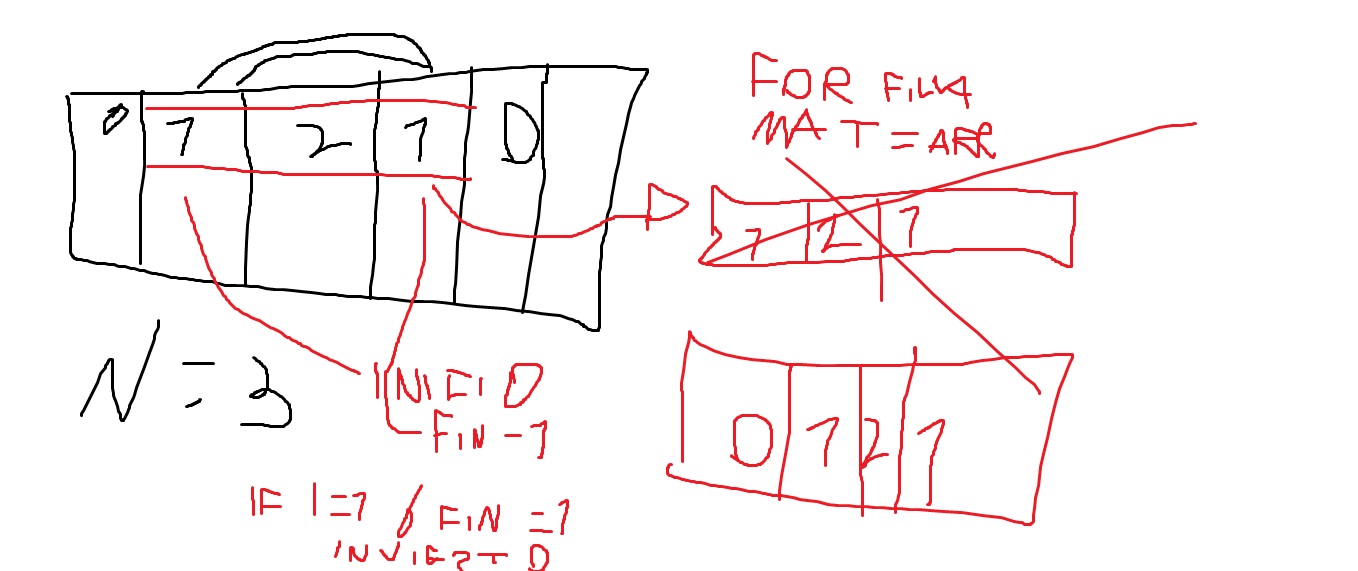 0 1 2 1 0
N = 3
INICIO
FIN - 1
IF I = 1 ó FIN = 1
INVIERTO
FOR FILA
MAT = ARR
1 2 1
0 1 2 1